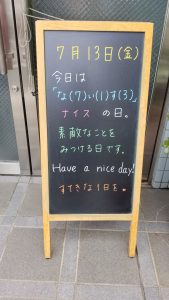 7月13日(金)
今日は
「な(7)い(1)す(3)」
ナイス の日。
素敵なことを
みつける日です。
Have a nice day!
すてきな1日を。